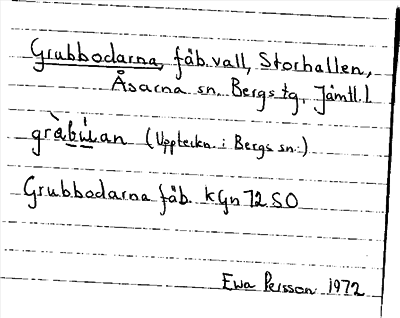 Grubbodarna, fäb.vall, Storhallen,
Åsarna sn. Bergs tg, Jämtl. l
gràbùlan (Uppteckn. i Bergs sn.)
Grubbodarna fäb. kgn 72 SO
Ewa Persson 1972